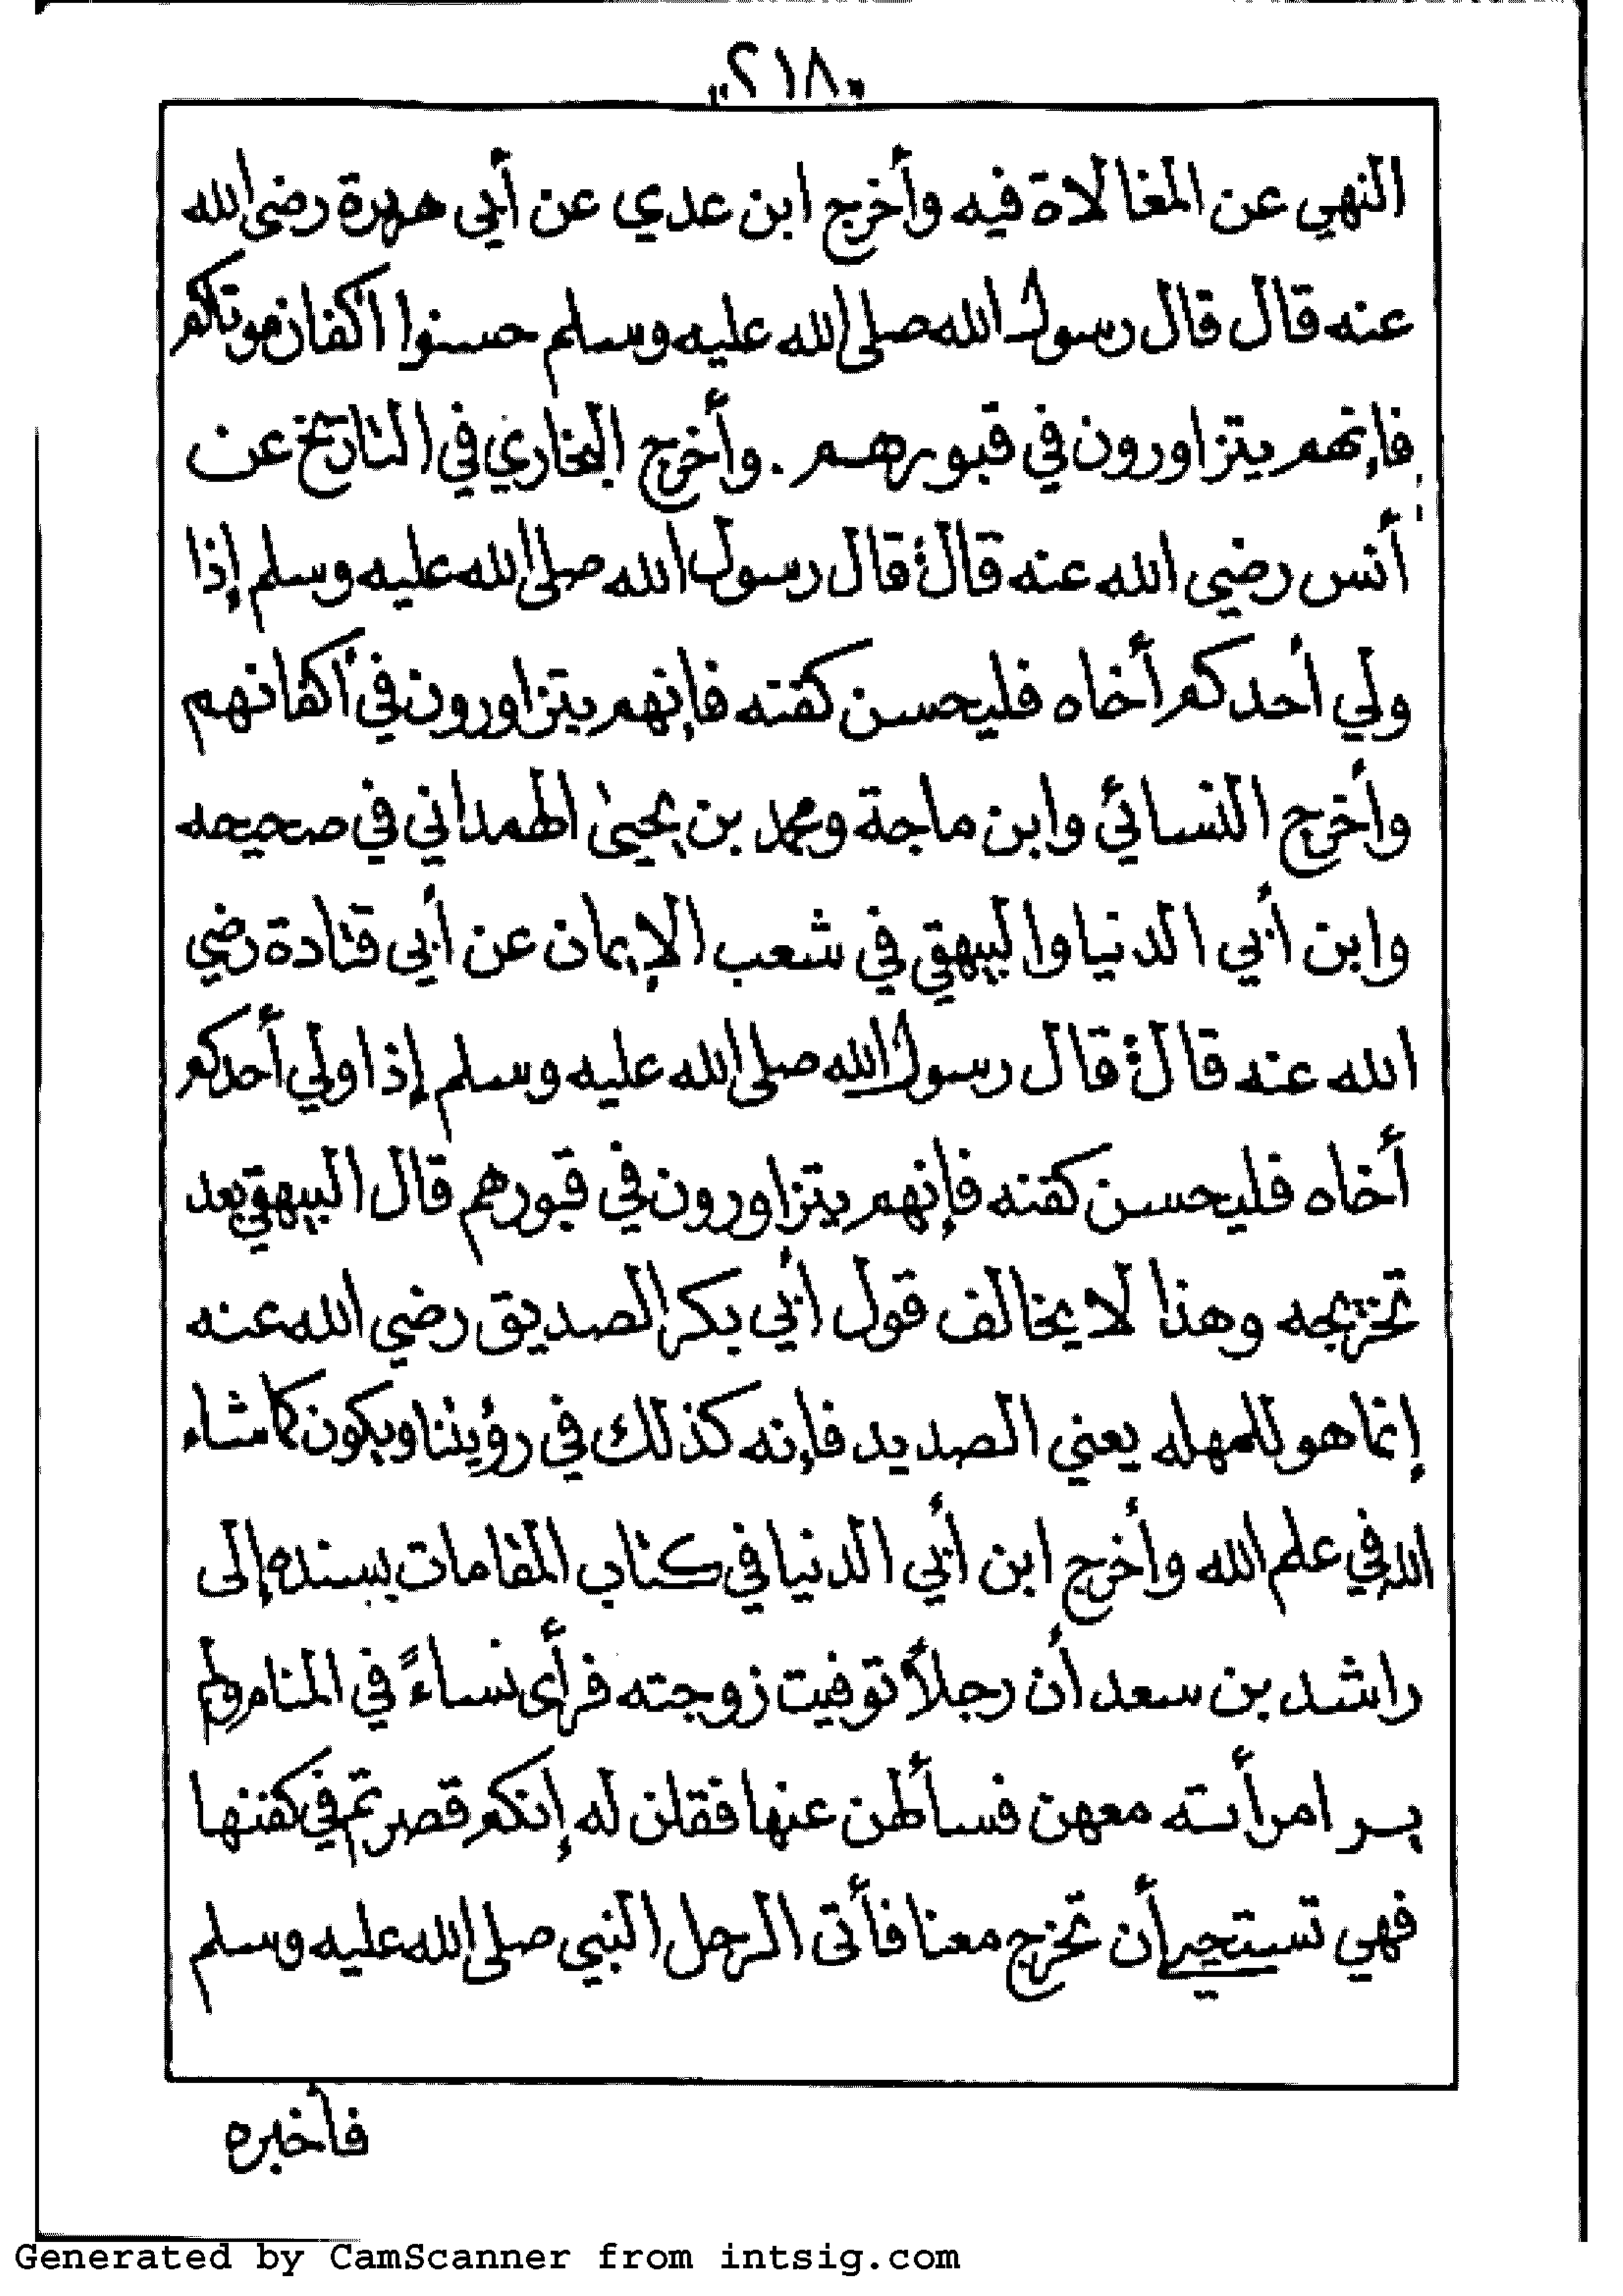 ٢١٨
النهي عن المغالاة فيه وأخرج ابن عدي عن أبي هريرة رضى الله
عنه قال قال رسول الله صلى الله عليه وسلم حسنوا اكفان موتاكم
فإنهم يتزاورون في قبورهم . وأخرج البخاري في التاريخ عن
أنس رضي الله عنه قال: قال رسول الله صلى الله عليه وسلم إذا
ولي أحدكم أخاه فليحسن كفنه فإنهم يتزاورون في أكفانهم
وأخرج النسائي وابن ماجة ومحمد بن يحيىٰ الهمداني في صحيحه
وابن أبي الدنيا والبيهقي في شعب الإيمان عن أبي قتادة رضي
الله عنه قال: قال رسول الله صلى الله عليه وسلم إذا ولي أحدكم
أخاه فليحسن كفنه فإنهم يتزاورون في قبورهم قال البيهقي بعد
تخريجه وهذا لا يخالف قول أبي بكر الصديق رضي الله عنه
إنما هو للمهله يعني الصديد فإنه كذلك في رؤيتنا ويكون كما شاء
الله في علم الله وأخرج ابن أبي الدنيا في كتاب المقامات بسنده إلى
راشد بن سعد أن رجلاً توفيت زوجته فرأى نساءً في المنام ولم
ير امرأته معهن فسألهن عنها فقلن له إنكم قصرتم في كفنها
فهي تستحير أن تخرج معنا فأتى الرجل النبي صلى الله عليه وسلم
فأخبره
Generated by CamScanner from intsig.com